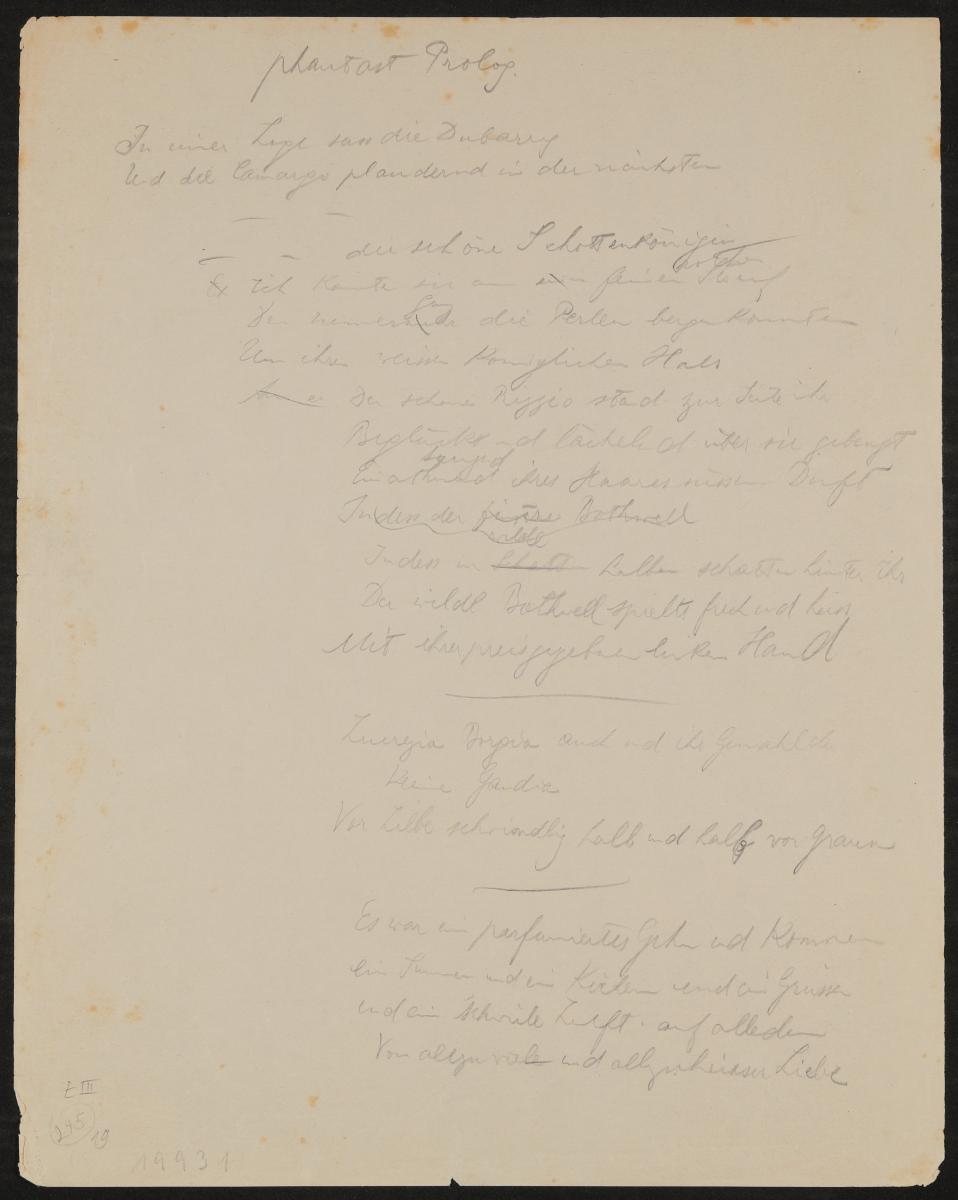 phantast Prolog.
In einer Loge sass die Dubarry
Und die Camargo plaudernd in der nächsten
die schöne Schottenkönigin
Ich kannte sie am feinen
die Perlen bergen konnten
Um ihren weissen königlichen Hals
Der schöne Rizzio stand zur Seite ihr
Beglückt und lächelnd über sie gebeugt
saugend
Einathmend ihres Haares süssen Duft
Indess der Bothwell
wilde
Indess im halben schatten hinter ihr
Der wilde Bothwell spielte frech und heiss
Mit ihrer preisgegebnen linken Hand
Lucrezia Borgia auch und ihr Gemahl der
kleine Gandia
Vor Liebe schwindlig halb und halb vor Graun
Es war ein parfumiertes Gehn und Kommen
Ein Summen und ein Kichern und ein Grüssen
und ein schwüle Luft auf alledem
Von allzuviele und allzuheisser Liebe
E III
245
19
19931